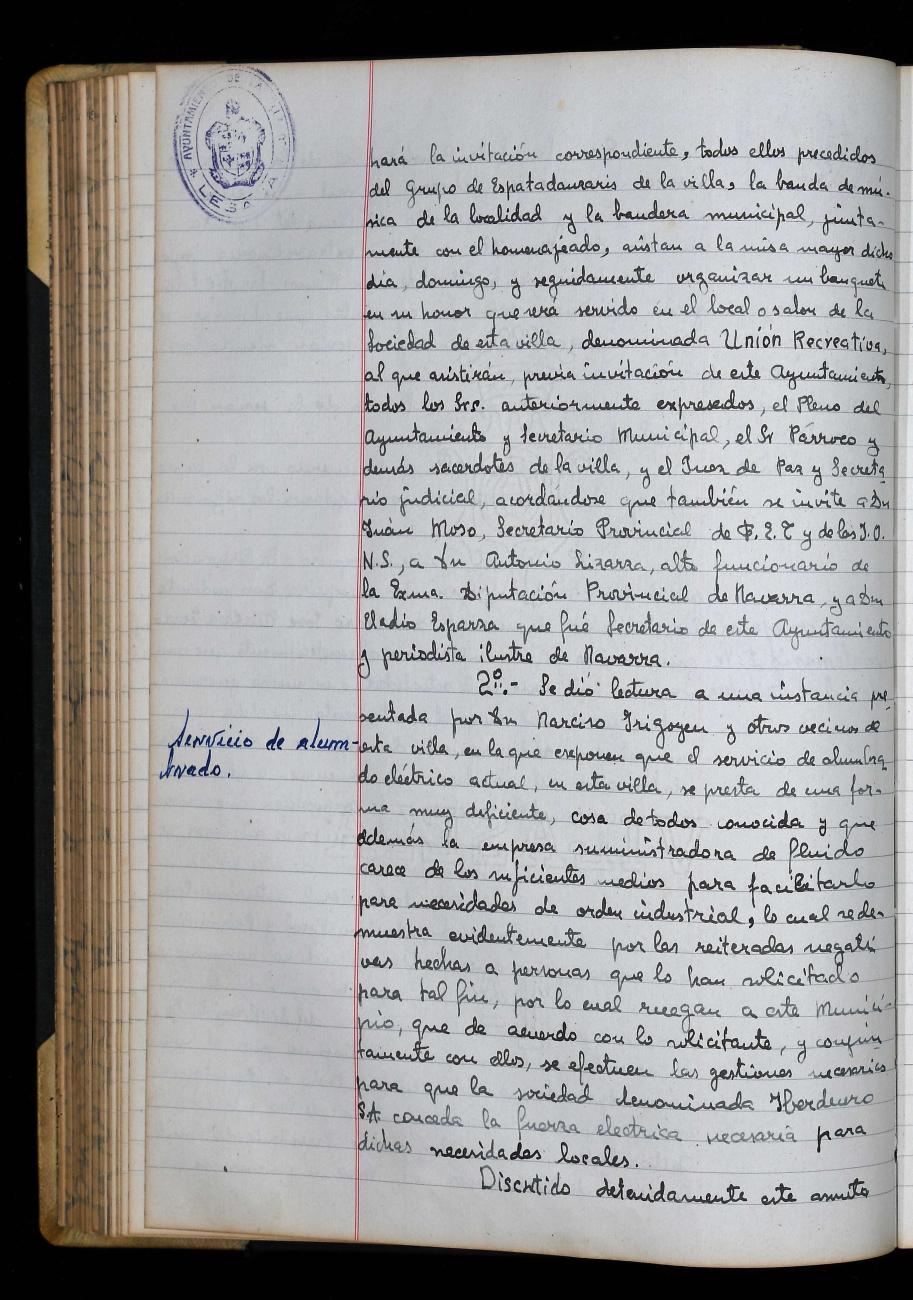 AYUNTAMIENTO DE LA VILLA
LESACA
hará la invitación correspondiente, todos ellos precedidos
del Grupo de Espatadanzaris de la villa, la banda de mú-
sica de la localidad y la bandera municipal, junta-
mente con el homenajeado, asistan a la misa mayor dicho
día, domingo, y seguidamente organizar un banquete
en su honor que será servido en el local o salon de la
Sociedad de esta villa, denominada Unión Recreativa,
al que asistirán, previa invitación de este Ayuntamiento,
todos los Srs. anteriormente expresados, el Pleno del
Ayuntamiento y Secretario Municipal, el Sr Párroco y
demás sacerdotes de la villa, y el Juez de Paz y Secreta
rio judicial, acordándose que también se invite a Dn
Juán Moso, Secretario Provincial de F.E.T y de las J.O.
N.S., a Dn Antonio Lizarza, alto funcionario de
la Exma. Diputación Provincial de Navarra, y a Dn
Eladio Esparza que fué Secretario de este Ayuntamiento
y periodista ilustre de Navarra.
2º.- Se dió lectura a una instancia pre
sentada por Dn Narciso Irigoyen y otros vecinos de
Servicio de alum-
brado.
esta villa, en la que exponen que el servicio de alumbra
do eléctrico actual, en esta villa, se presta de una for-
ma muy deficiente, cosa de todos conocida y que
además la empresa suministradora de fluido
carece de los suficientes medios para facilitarlo
para necesidades de orden industrial, lo cual se de-
muestra evidentemente por las reiteradas negati
vas hechas a personas que lo han solicitado
para tal fin, por lo cual ruegan a este Munici-
pio, que de acuerdo con lo solicitante, y conjun
tamente con ellos, se efectuen las gestiones necesarias
para que la sociedad denominada Iberduero
SA conceda la fuerza electrica necesaria para
dichas necesidades locales.
Discutido detenidamente este asunto